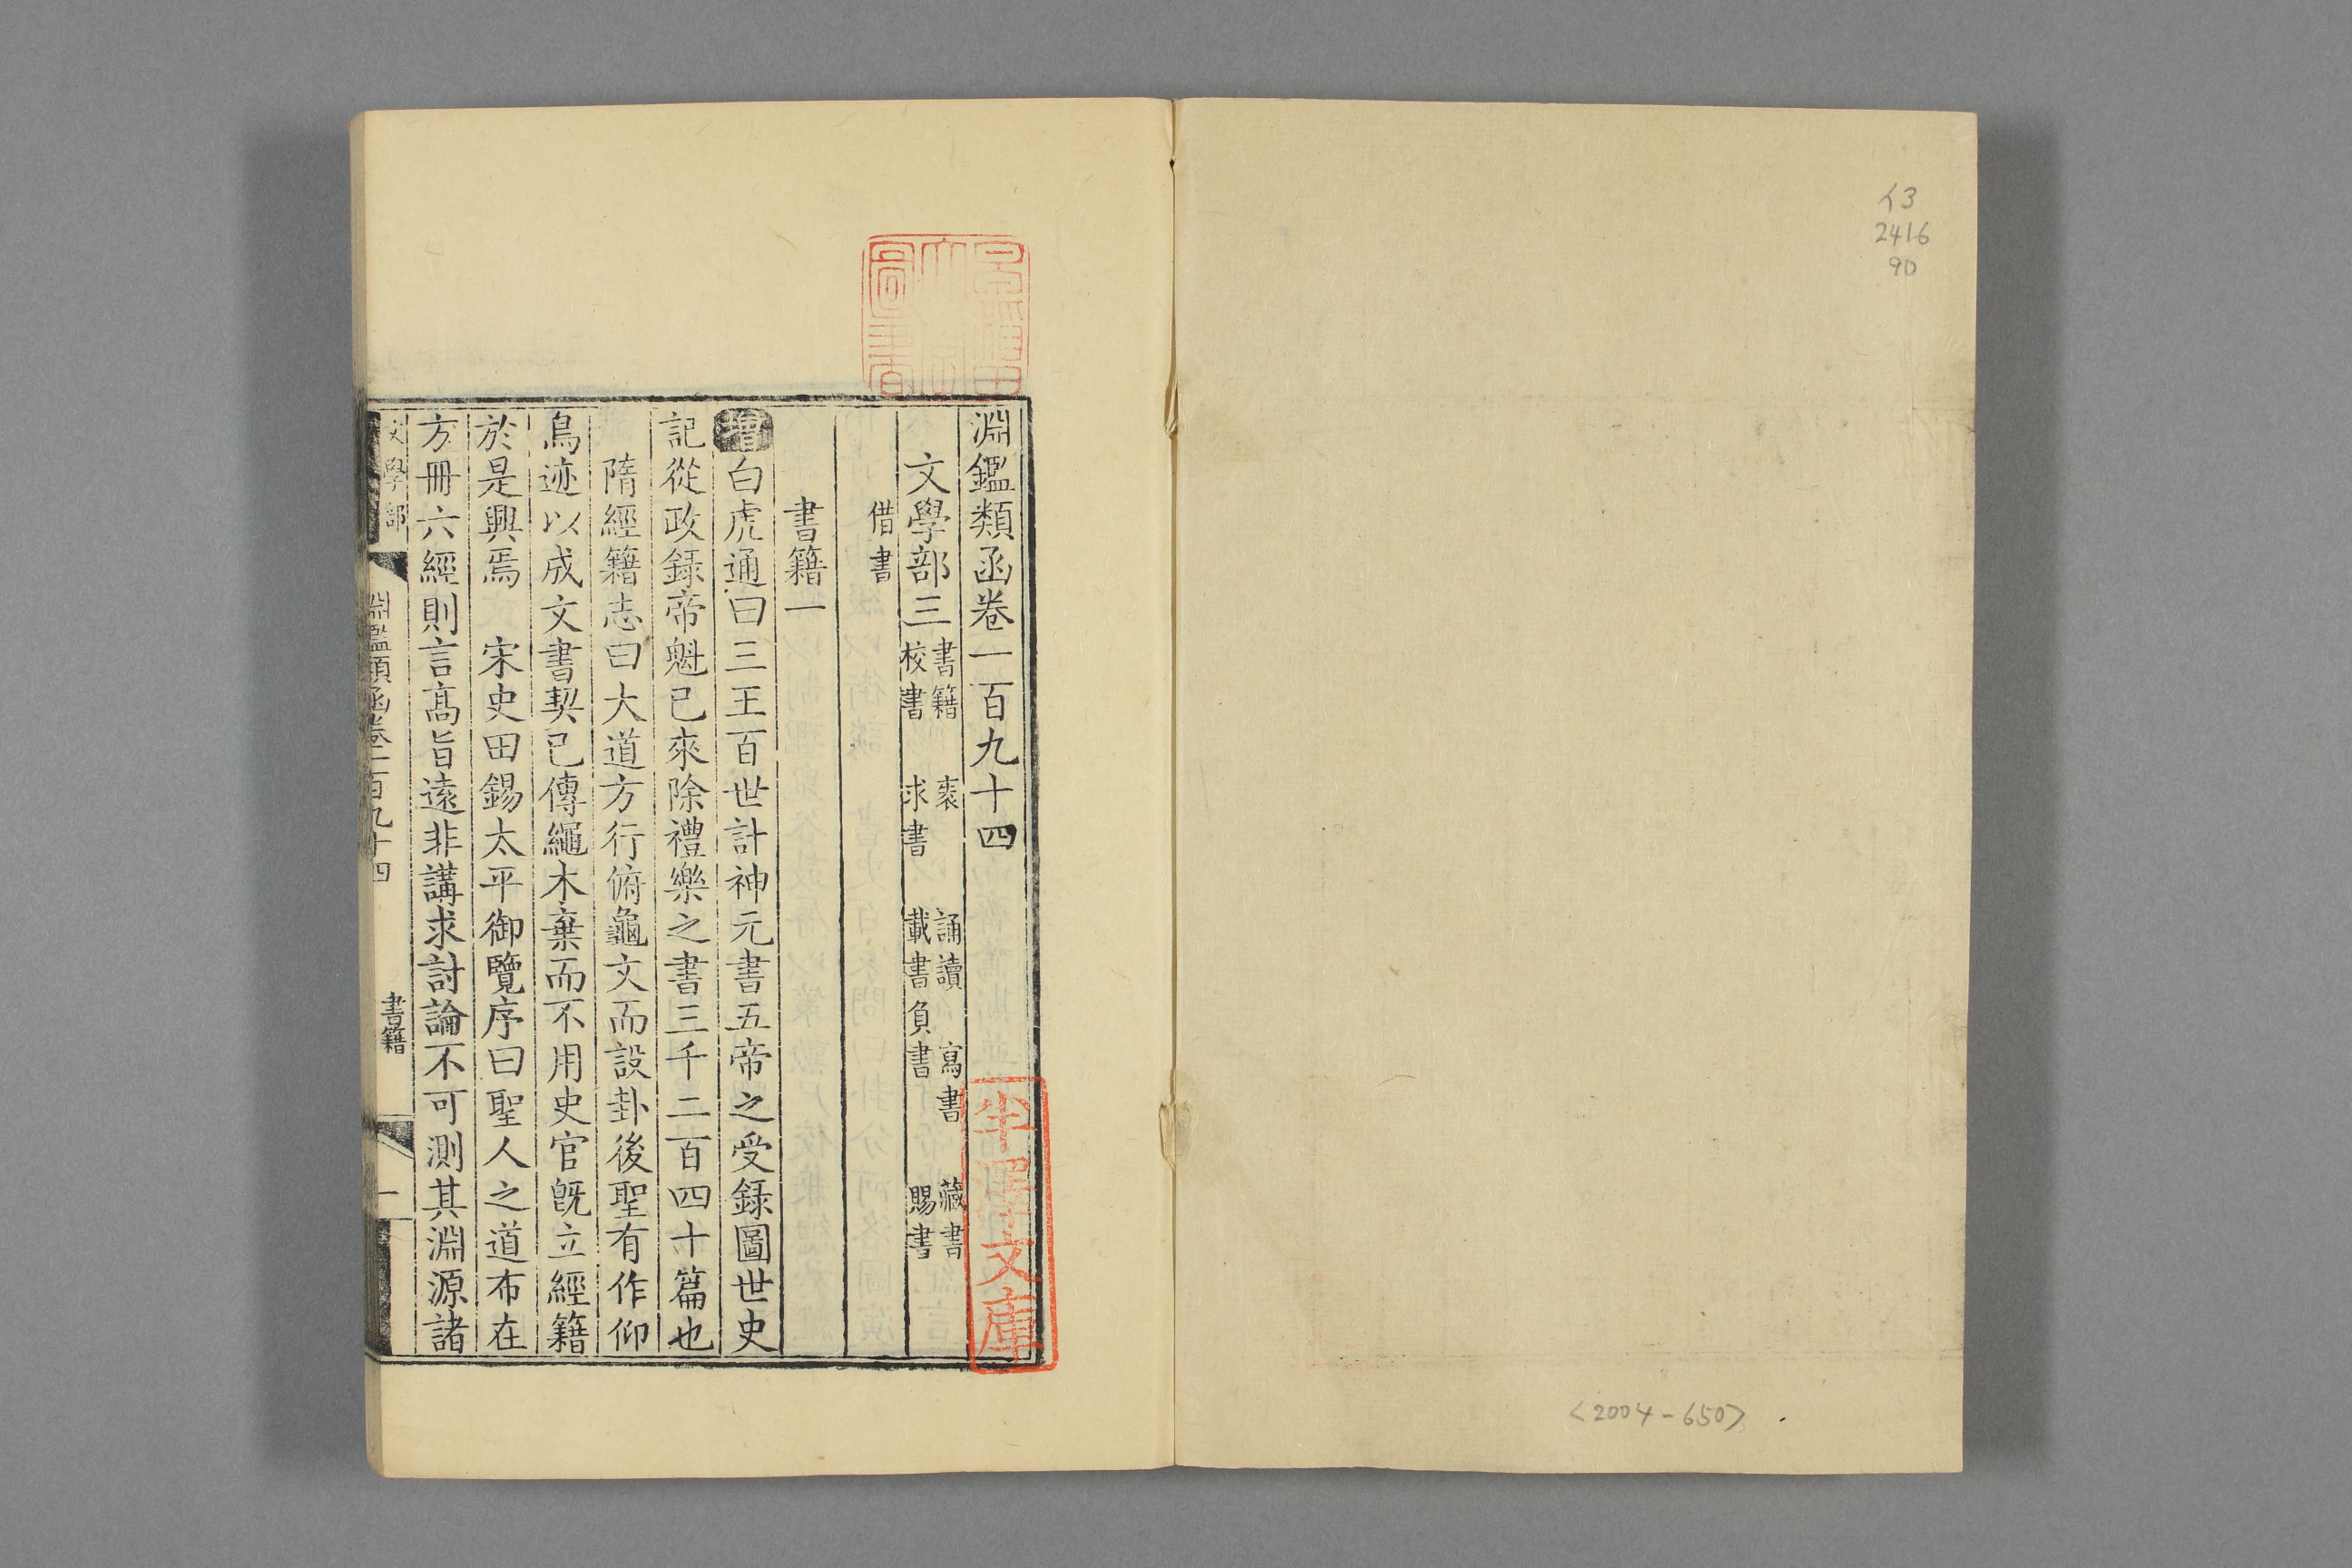 イ3
2416
90
<2004-650>
淵鑑類函卷一百九十四
文學部三
書籍 袠 誦讀 寫書 藏書
校書 求書 載書負書 賜書
借書
書籍一
增白虎通曰三王百世計神元書五帝之受錄圖世史
記從政錄帝魁已來除禮樂之書三千二百四十篇也
隋經籍志曰大道方行俯龜文而設卦後聖有作仰
鳥迹以成文書契已傳繩木棄而不用史官旣立經籍
於是興焉 宋史田錫太平御覽序曰聖人之道布在
方冊六經則言高旨遠非講求討論不可測其淵源諸
文學部 淵鑑類函卷一百九十四 書籍 一
圖書
半澤文庫